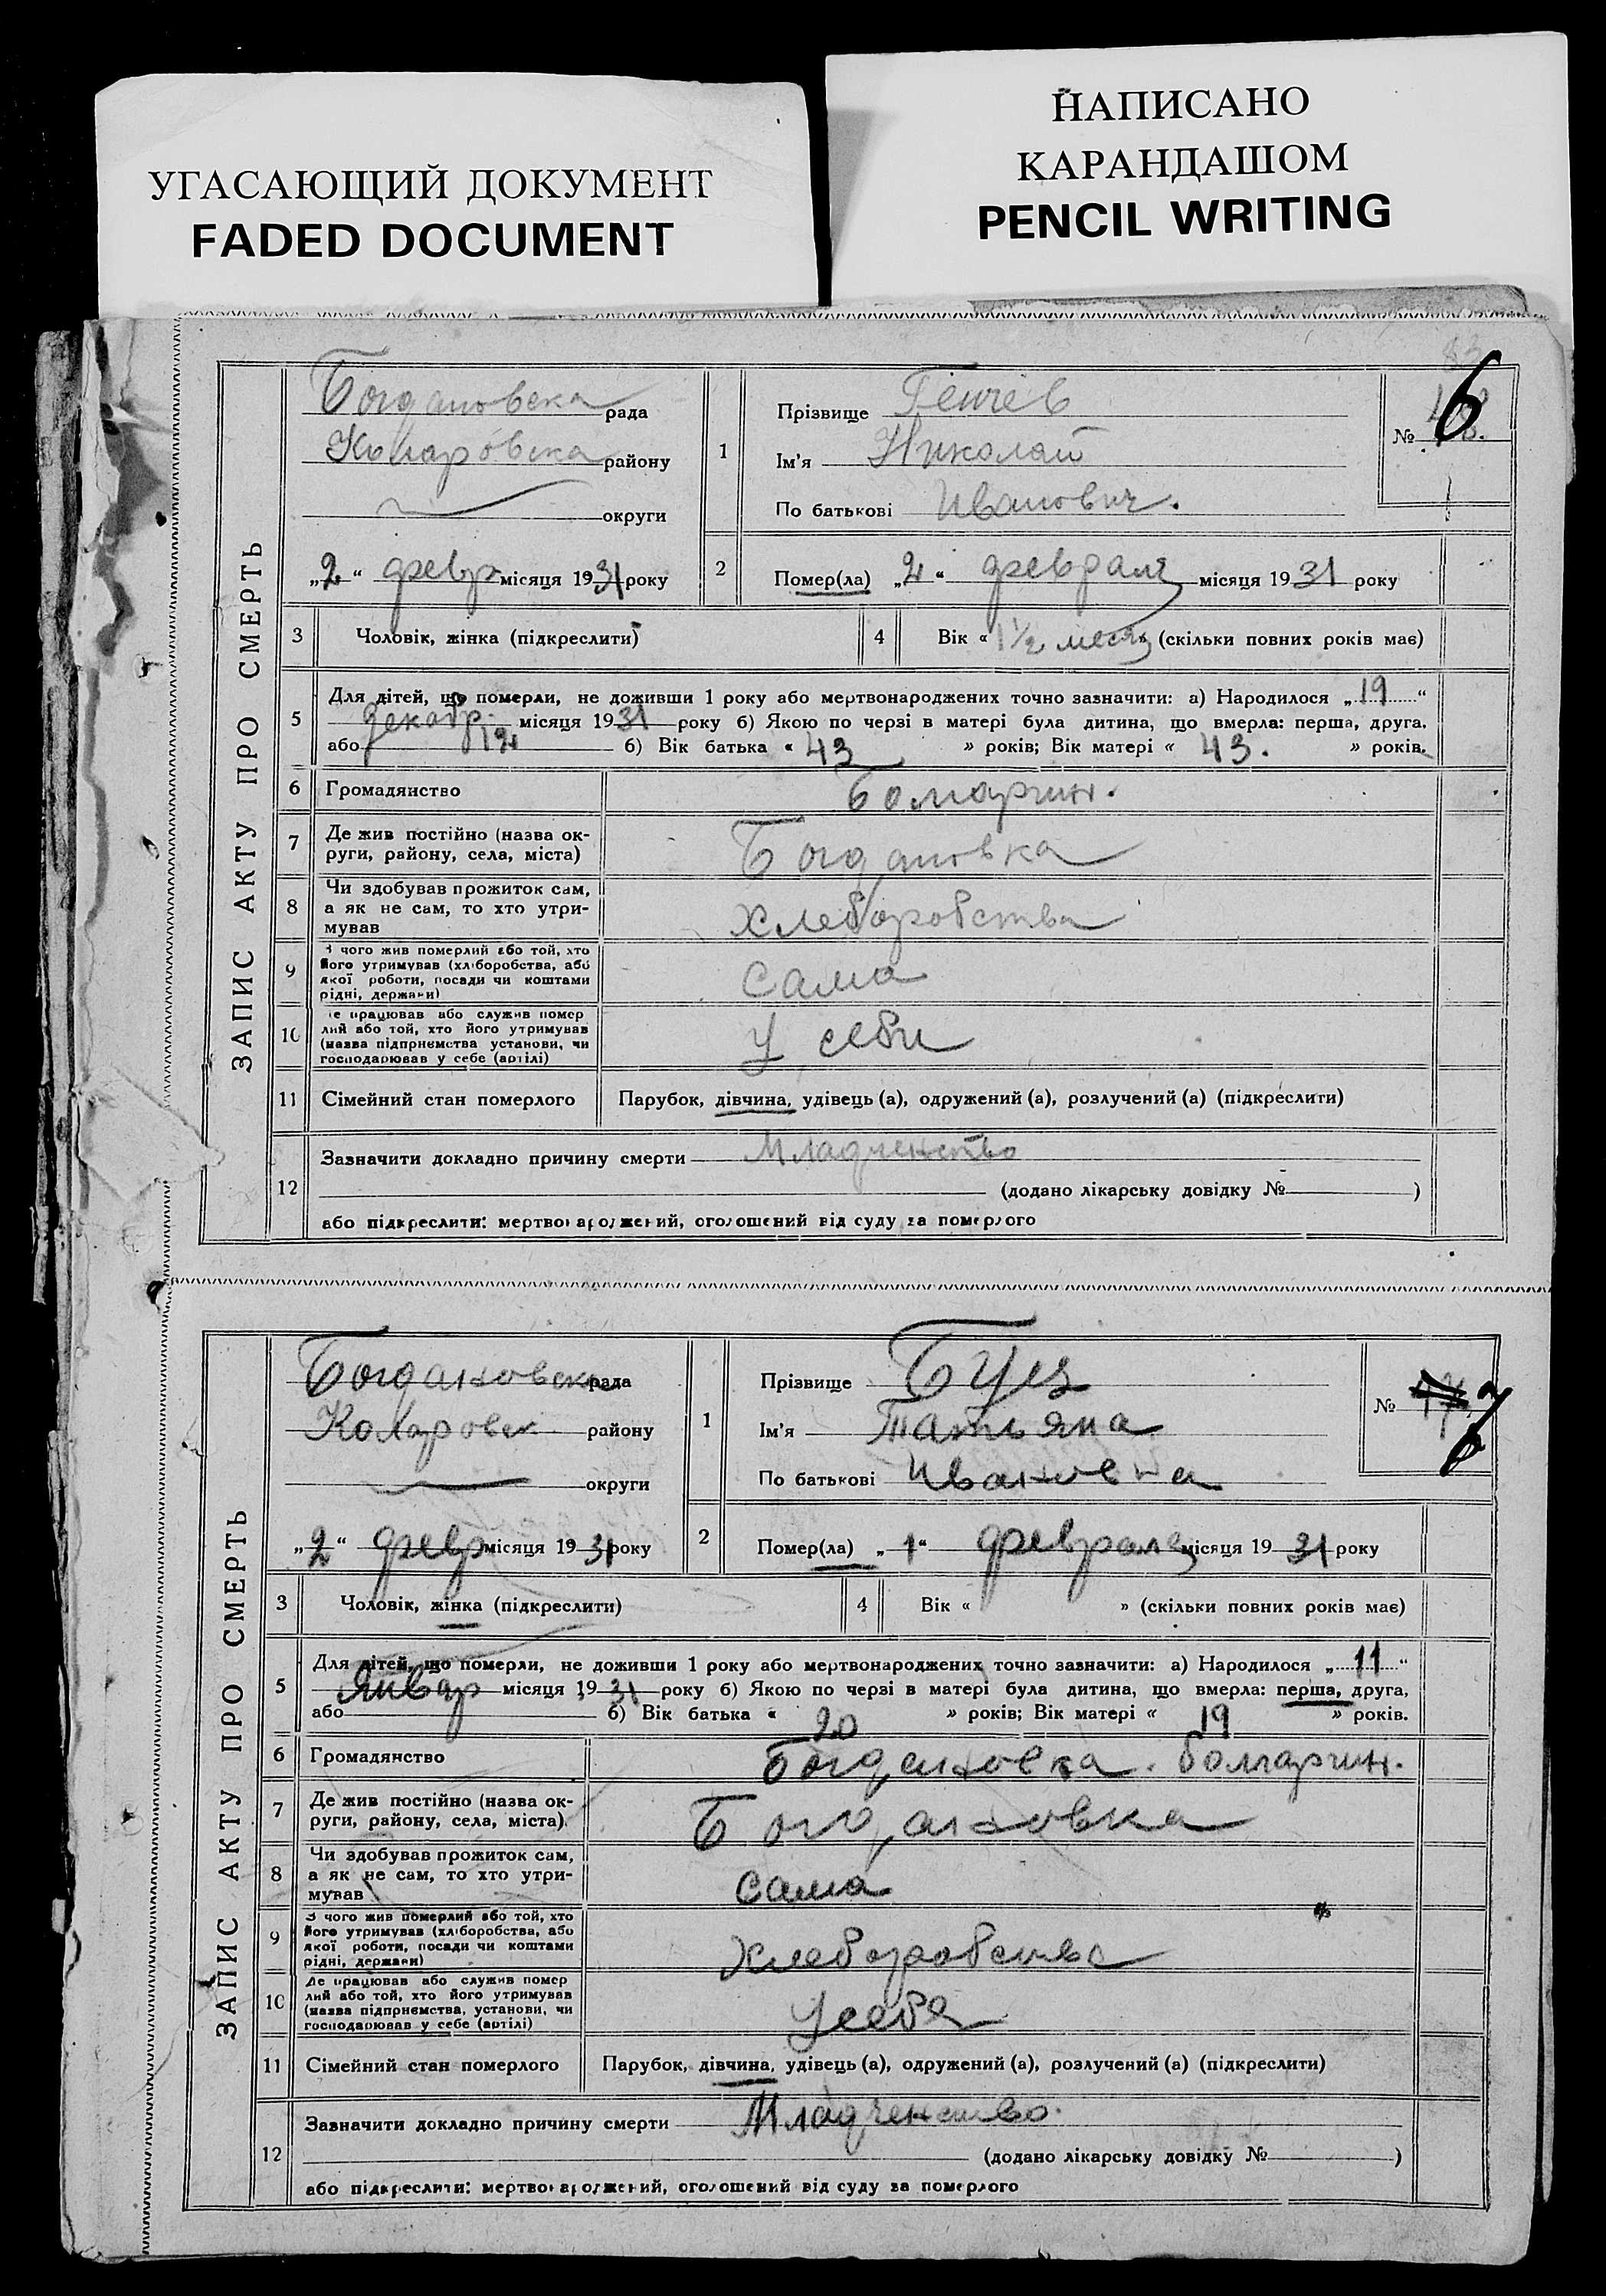 УГАСАЮЩИЙ ДОКУМЕНТ
FADED DOCUMENT
НАПИСАНО
КАРАНДАШОМ
PENCIL WRITING
ЗАПИС АКТУ ПРО СМЕРТЬ
Богдановска рада
Коларовска району
округи
„2“ февр місяця 1931 року
1
Прізвище Генчев
Ім'я Николай
По батькові Иванович.
№ 6
2
Помер(ла) „2“ февраля місяця 1931 року
3 Чоловік, жінка (підкреслити)
4 Вік « 1½ месяц (скільки повних років має)
5 Для дітей, що померли, не доживши 1 року або мертвонароджених точно зазначити: а) Народилося „19“
декабр. місяця 1931 року б) Якою по черзі в матері була дитина, що вмерла: перша, друга,
або б) Вік батька « 43 » років; Вік матері « 43. » років.
6 Громадянство болгарин.
7 Де жив постійно (назва ок-
руги, району, села, міста) Богдановка
8 Чи здобував прожиток сам,
а як не сам, то хто утри-
мував хлеборобства
9 З чого жив померлий або той, хто
його утримував (хліборобства, або
якої роботи, посади чи коштами
рідні, держави) сама
10 Де працював або служив помер
лий або той, хто його утримував
(назва підприємства установи, чи
господарював у себе (артілі) у себи
11 Сімейний стан померлого Парубок, дівчина, удівець (а), одружений (а), розлучений (а) (підкреслити)
12 Зазначити докладно причину смерти Младченство
(додано лікарську довідку № )
або підкреслити: мертвонароджений, оголошений від суду за померлого
ЗАПИС АКТУ ПРО СМЕРТЬ
Богдановска рада
Коларовск району
округи
„2“ февр місяця 1931 року
1
Прізвище Буея
Ім'я Татьяна
По батькові Ивановна
№ 7
2
Помер(ла) „1“ февраля місяця 1931 року
3 Чоловік, жінка (підкреслити)
4 Вік « » (скільки повних років має)
5 Для дітей, що померли, не доживши 1 року або мертвонароджених точно зазначити: а) Народилося „11“
Январ місяця 1931 року б) Якою по черзі в матері була дитина, що вмерла: перша, друга,
або б) Вік батька « 20 » років; Вік матері « 19 » років.
6 Громадянство Богдановка. болгарин.
7 Де жив постійно (назва ок-
руги, району, села, міста) Богдановка
8 Чи здобував прожиток сам,
а як не сам, то хто утри-
мував сама
9 З чого жив померлий або той, хто
його утримував (хліборобства, або
якої роботи, посади чи коштами
рідні, держави) Хлеборобства
10 Де працював або служив помер
лий або той, хто його утримував
(назва підприємства, установи, чи
господарював у себе (артілі) Усебя
11 Сімейний стан померлого Парубок, дівчина, удівець (а), одружений (а), розлучений (а) (підкреслити)
12 Зазначити докладно причину смерти Младченство.
(додано лікарську довідку № )
або підкреслити: мертвонароджений, оголошений від суду за померлого